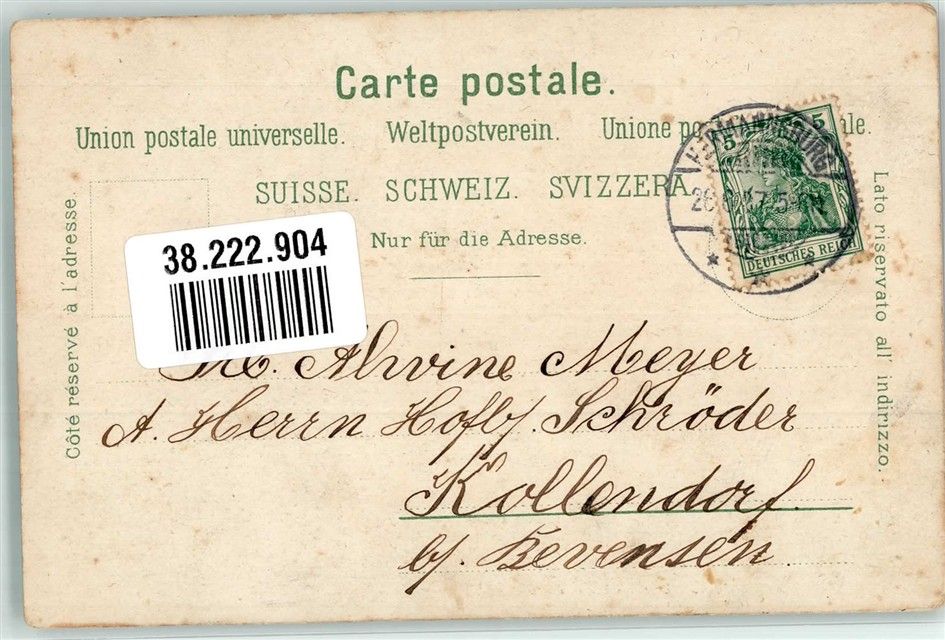 Carte postale.
Union postale universelle. Weltpostverein. Unione po ale.
SUISSE. SCHWEIZ. SVIZZERA.
Nur für die Adresse.
Côté réservé à l'adresse.
38.222.904
5 5
DEUTSCHES REICH
Lato riservato all' indirizzo.
Alwine Meyer
A. Herrn Hofbs. Schröder
Kollendorf
b/. Bevensen.